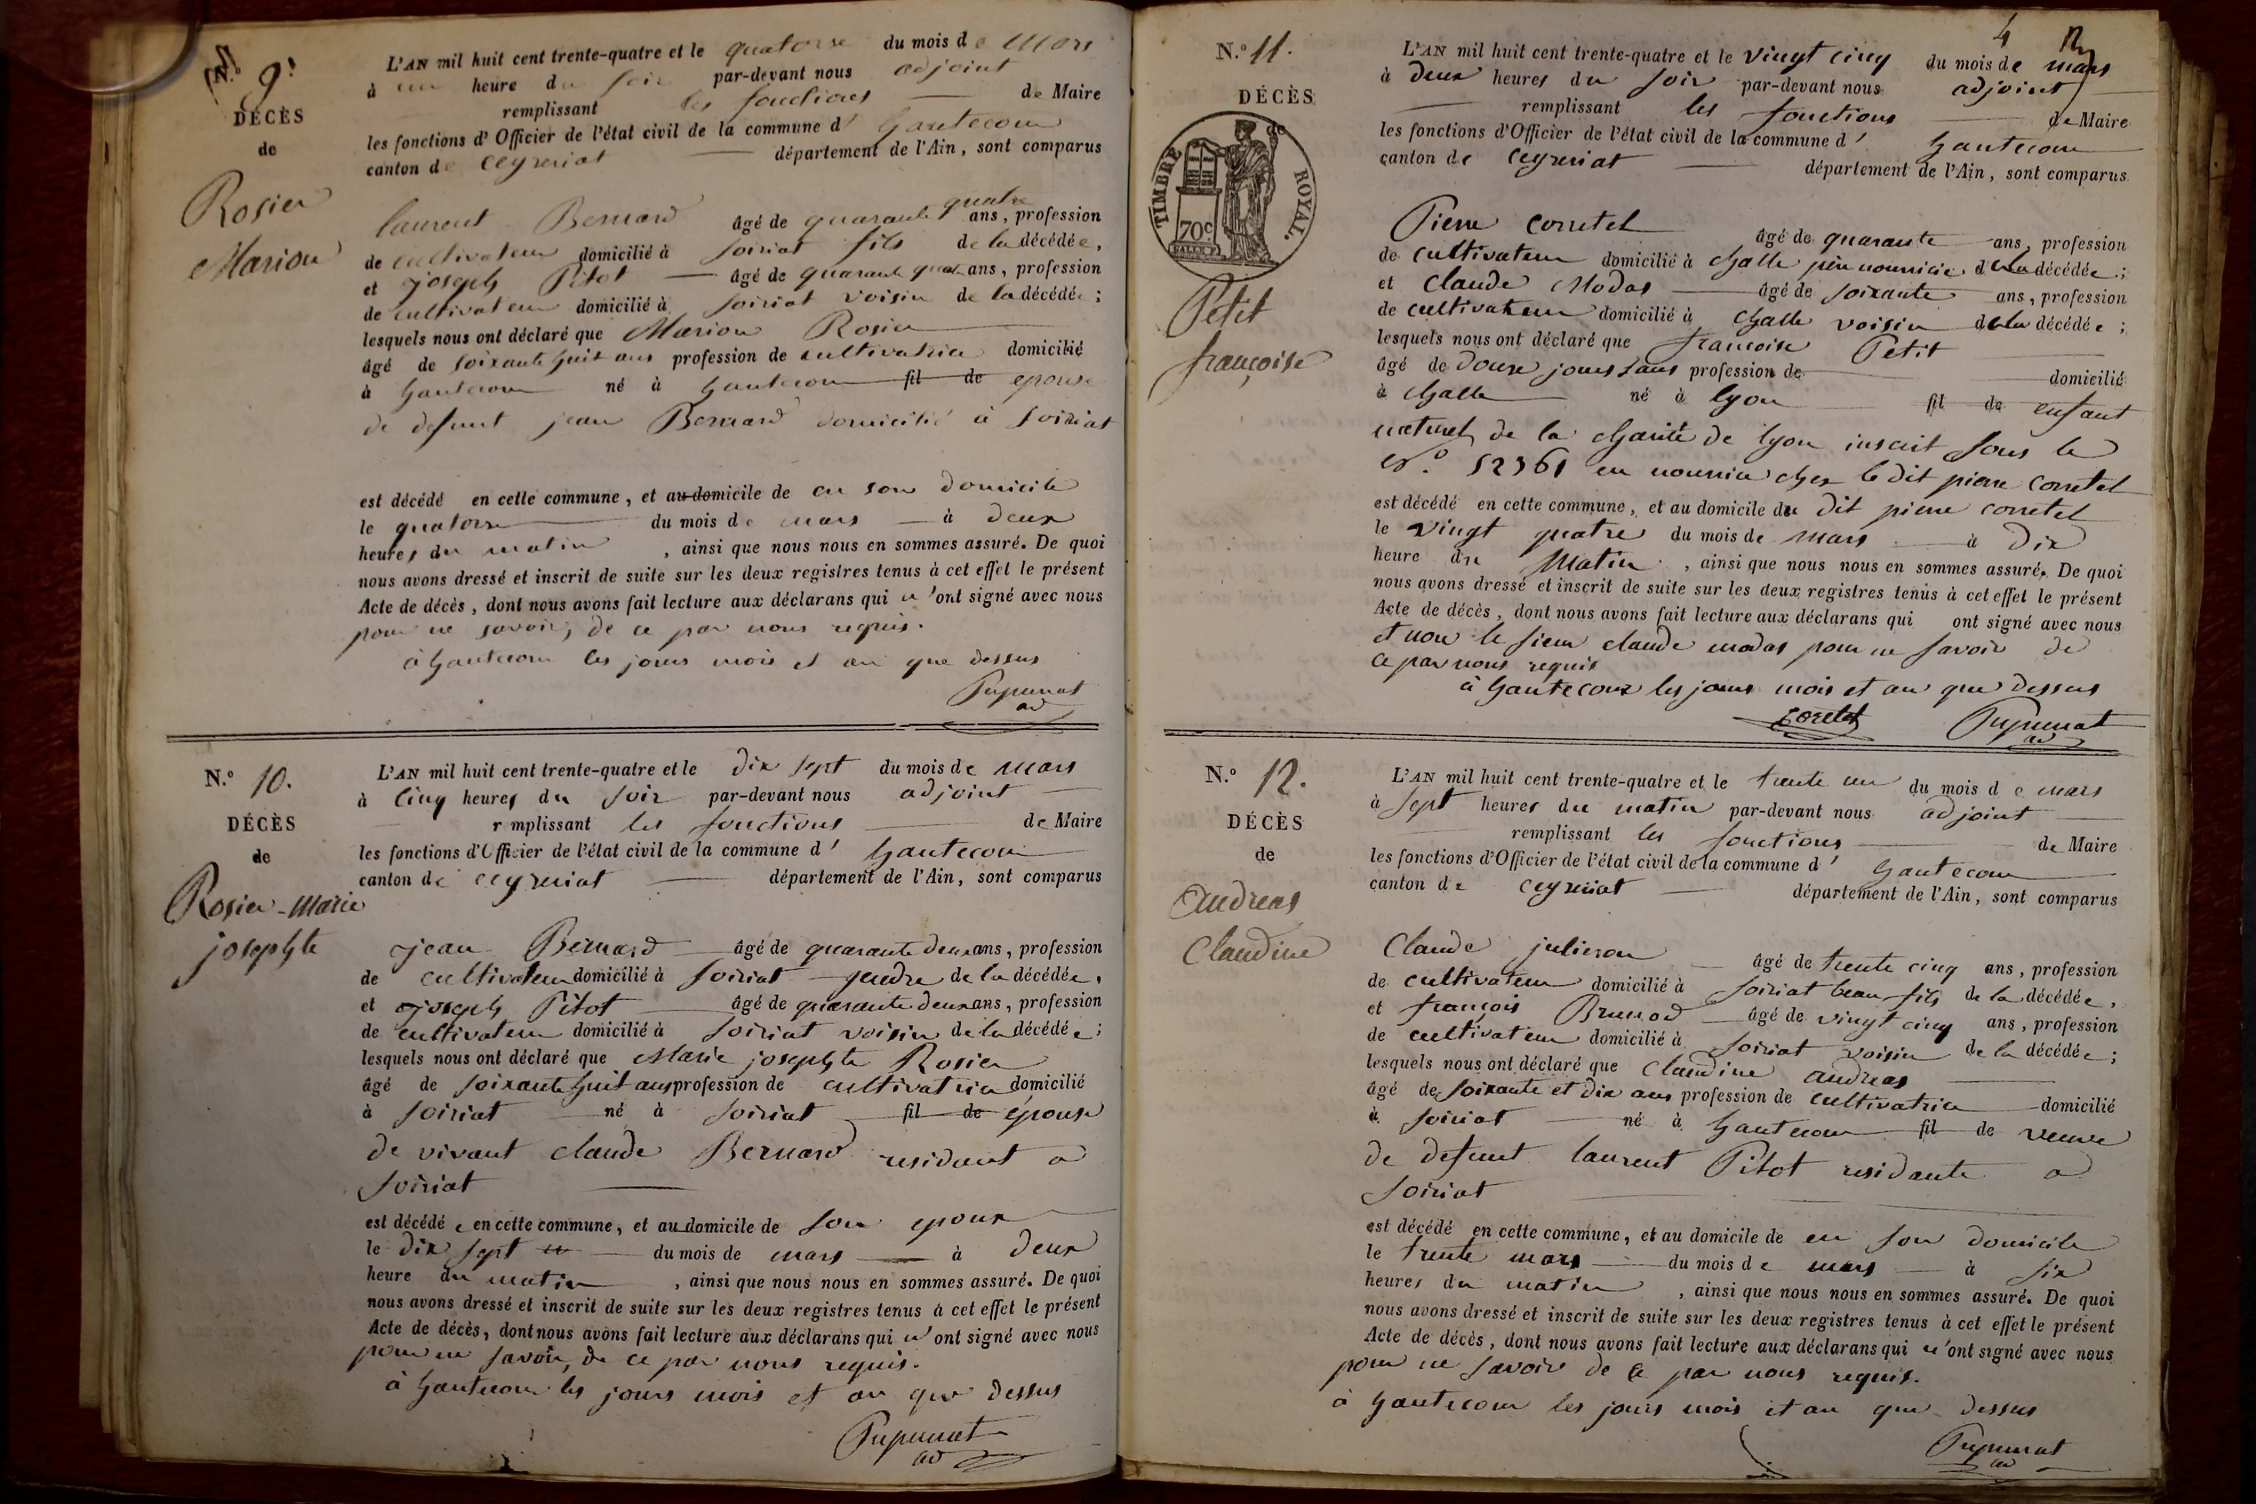 N.º 9.
DÉCÈS
de
Rosier
Marion
L'AN mil huit cent trente-quatre et le quatorze du mois de Mars
à une heure du soir par-devant nous adjoint
remplissant les fonctions de Maire
les fonctions d'Officier de l'état civil de la commune d' hautecour
canton de ceyzeriat département de l'Ain, sont comparus
laurent Bernard âgé de quarante quatre ans, profession
de cultivateur domicilié à soiriat fils de la décédée,
et joseph Pitot âgé de quarante quatre ans, profession
de cultivateur domicilié à soiriat voisin de la décédée;
lesquels nous ont déclaré que Marion Rosier
âgé de soixante huit ans profession de cultivatrice domicilié
à hautecour né à hautecour fil de epouse
de defunt jean Bernard domicilié à soiriat
est décédé en cette commune, et au domicile de en son domicile
le quatorze du mois de mars à deux
heures du matin, ainsi que nous nous en sommes assuré. De quoi
nous avons dressé et inscrit de suite sur les deux registres tenus à cet effet le présent
Acte de décès, dont nous avons fait lecture aux déclarans qui n'ont signé avec nous
pour ne savoir, de ce par nous requis.
à hautecour les jours mois et an que dessus
Pupunat
ad
N.º 10.
DÉCÈS
de
Rosier-Marie
josephte
L'AN mil huit cent trente-quatre et le dix sept du mois de mars
à cinq heures du soir par-devant nous adjoint
r mplissant les fonctions de Maire
les fonctions d'Officier de l'état civil de la commune d' hautecour
canton de ceyzeriat département de l'Ain, sont comparus
jean Bernard âgé de quarante deux ans, profession
de cultivateur domicilié à soiriat gendre de la décédée,
et joseph Pitot âgé de quarante deux ans, profession
de cultivateur domicilié à soiriat voisin de la décédée;
lesquels nous ont déclaré que Marie josephte Rosier
âgé de soixante huit ans profession de cultivatrice domicilié
à soiriat né à soiriat fil de épouse
de vivant claude Bernard residant a
soiriat
est décédé e en cette commune, et au domicile de son epoux
le dix sept du mois de mars à deux
heure du matin, ainsi que nous nous en sommes assuré. De quoi
nous avons dressé et inscrit de suite sur les deux registres tenus à cet effet le présent
Acte de décès, dont nous avons fait lecture aux déclarans qui n'ont signé avec nous
pour ne savoir, de ce par nous requis.
à hautecour les jours mois et an que dessus
Pupunat
ad
4
N.º 11.
DÉCÈS
TIMBRE ROYAL.
70c
Petit
françoise
L'AN mil huit cent trente-quatre et le vingt cinq du mois de mars
à deux heures du soir par-devant nous adjoint
remplissant les fonctions de Maire
les fonctions d'Officier de l'état civil de la commune d' hautecour
canton de ceyzeriat département de l'Ain, sont comparus
Pierre corretel âgé de quarante ans, profession
de cultivateur domicilié à challe père nourricier de la décédée;
et claude Modas âgé de soixante ans, profession
de cultivateur domicilié à challe voisin de la décédée;
lesquels nous ont déclaré que françoise Petit
âgé de douze jours sans profession de domicilié
à challe né à lyon fil de enfant
naturel de la charité de lyon inscrit sous le
Nº 52361 en nourrice chez le dit pierre corretel
est décédé en cette commune, et au domicile du dit pierre corretel
le vingt quatre du mois de mars à dix
heure du Matin, ainsi que nous nous en sommes assuré. De quoi
nous avons dressé et inscrit de suite sur les deux registres tenus à cet effet le présent
Acte de décès, dont nous avons fait lecture aux déclarans qui ont signé avec nous
et non le sieur claude modas pour ne savoir de
ce par nous requis
à hautecour les jours mois et an que dessus
Coretel Pupunat
ad
N.º 12.
DÉCÈS
de
andreas
Claudine
L'AN mil huit cent trente-quatre et le trente un du mois de mars
à sept heures du matin par-devant nous adjoint
remplissant les fonctions de Maire
les fonctions d'Officier de l'état civil de la commune d' hautecour
canton de ceyzeriat département de l'Ain, sont comparus
Claude julieron âgé de trente cinq ans, profession
de cultivateur domicilié à soiriat beau-fils de la décédée,
et françois Brunod âgé de vingt cinq ans, profession
de cultivateur domicilié à soiriat voisin de la décédée;
lesquels nous ont déclaré que Claudine andreas
âgé de soixante et dix ans profession de cultivatrice domicilié
à soiriat né à hautecour fil de veuve
de defunt laurent Pitot residante a
soiriat
est décédé en cette commune, et au domicile de en son domicile
le trente mars du mois de mars à six
heures du matin, ainsi que nous nous en sommes assuré. De quoi
nous avons dressé et inscrit de suite sur les deux registres tenus à cet effet le présent
Acte de décès, dont nous avons fait lecture aux déclarans qui n'ont signé avec nous
pour ne savoir de ce par nous requis.
à hautecour les jours mois et an que dessus
Pupunat
ad